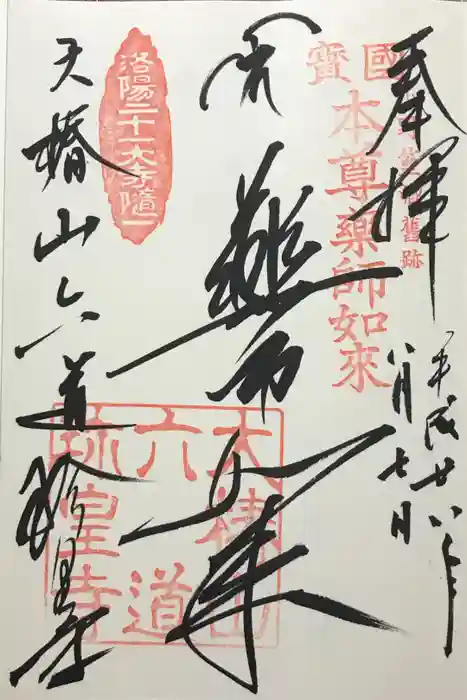 奉拝
平成廿八年
八月七日
舊跡
國寶
本尊藥師如來
薬師如来
洛陽二十一大寺隨一
大椿山
六道
珎皇寺
大椿山六道珍皇寺